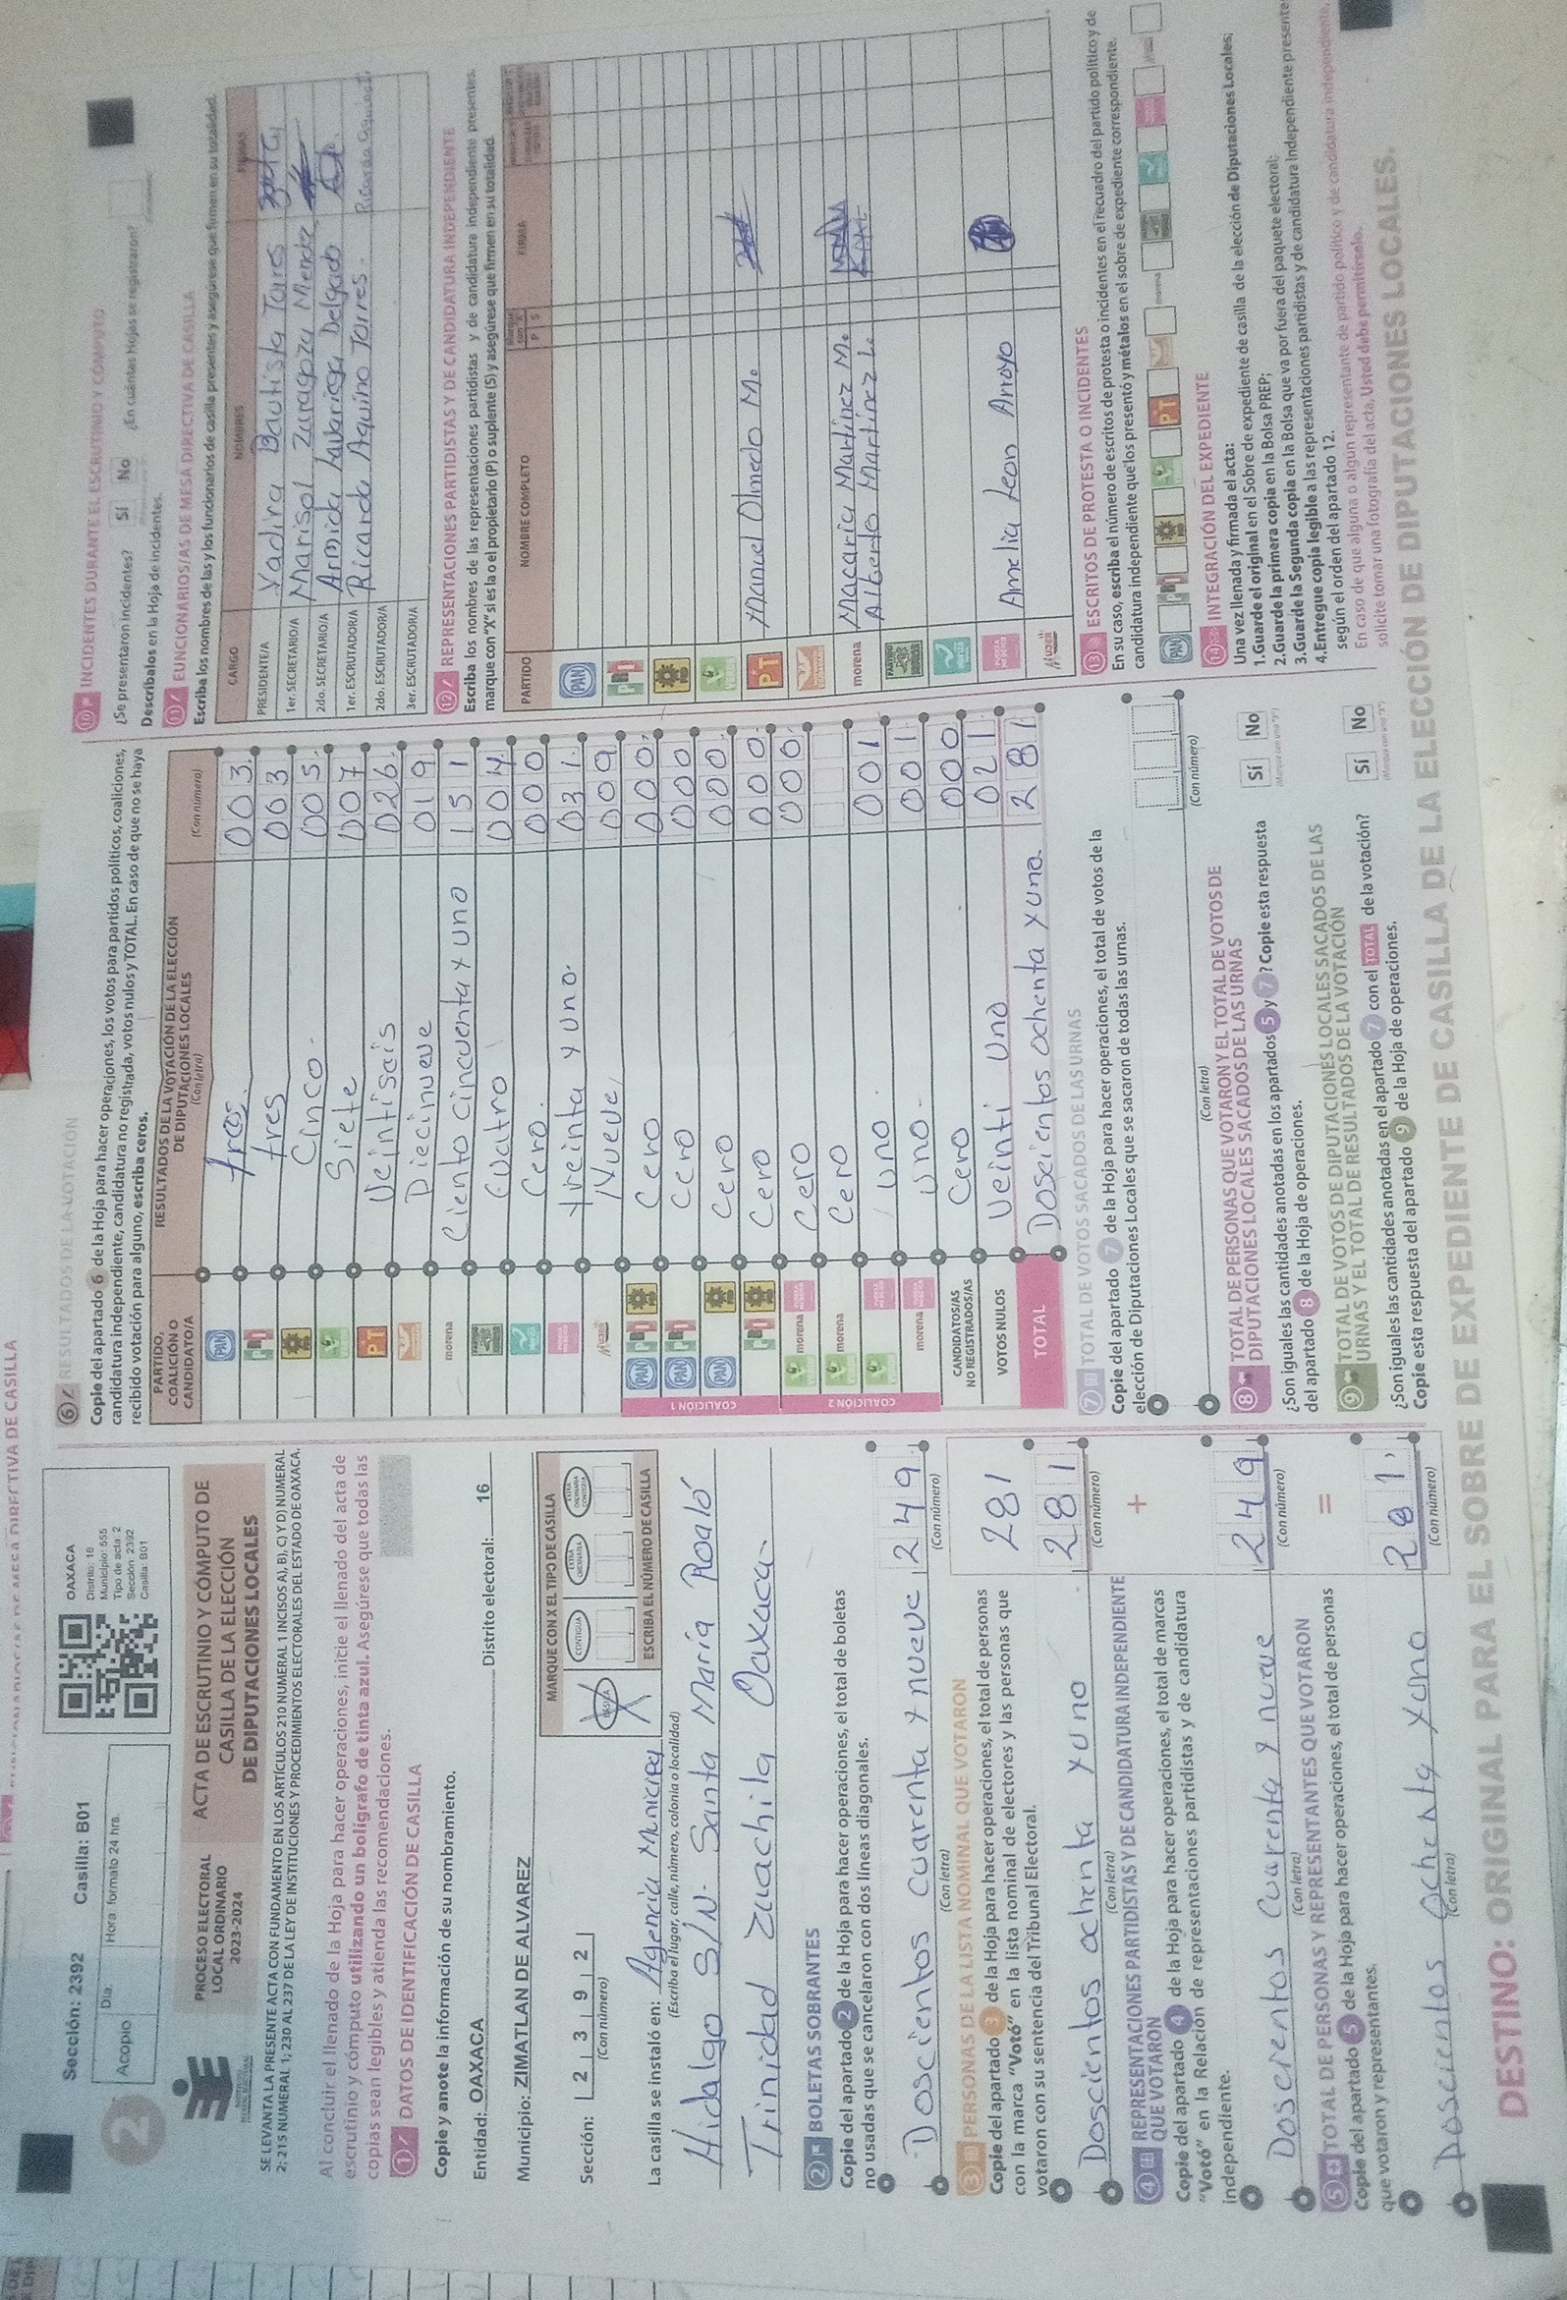 Sección: 2392 Casilla: B01
2
Acopio
Día:
Hora: formato 24 hrs.
OAXACA
Distrito: 16
Municipio: 555
Tipo de acta: 2
Sección: 2392
Casilla: B01
PROCESO ELECTORAL
LOCAL ORDINARIO
2023-2024
ACTA DE ESCRUTINIO Y CÓMPUTO DE
CASILLA DE LA ELECCIÓN
DE DIPUTACIONES LOCALES
SE LEVANTA LA PRESENTE ACTA CON FUNDAMENTO EN LOS ARTÍCULOS 210 NUMERAL 1 INCISOS A), B), C) Y D) NUMERAL
2; 215 NUMERAL 1; 230 AL 237 DE LA LEY DE INSTITUCIONES Y PROCEDIMIENTOS ELECTORALES DEL ESTADO DE OAXACA.
Al concluir el llenado de la Hoja para hacer operaciones, inicie el llenado del acta de
escrutinio y cómputo utilizando un bolígrafo de tinta azul. Asegúrese que todas las
copias sean legibles y atienda las recomendaciones.
1 DATOS DE IDENTIFICACIÓN DE CASILLA
Copie y anote la información de su nombramiento.
Entidad: OAXACA Distrito electoral: 16
Municipio: ZIMATLAN DE ALVAREZ
Sección: 2 3 9 2
(Con número)
MARQUE CON X EL TIPO DE CASILLA
BÁSICA CONTIGUA EXTRAORDINARIA EXTRAORDINARIA CONTIGUA
ESCRIBA EL NÚMERO DE CASILLA
La casilla se instaló en: Agencia Municipal
(Escriba el lugar, calle, número, colonia o localidad)
Hidalgo S/N. Santa María Roaló
Trinidad Zuachila Oaxaca.
2 BOLETAS SOBRANTES
Copie del apartado 2 de la Hoja para hacer operaciones, el total de boletas
no usadas que se cancelaron con dos líneas diagonales.
Doscientos cuarenta y nueve 249
(Con letra) (Con número)
3 PERSONAS DE LA LISTA NOMINAL QUE VOTARON
Copie del apartado 3 de la Hoja para hacer operaciones, el total de personas
con la marca "Votó" en la lista nominal de electores y las personas que
votaron con su sentencia del Tribunal Electoral.
281
Doscientos ochenta y uno 281
(Con letra) (Con número)
4 REPRESENTACIONES PARTIDISTAS Y DE CANDIDATURA INDEPENDIENTE
QUE VOTARON
+
Copie del apartado 4 de la Hoja para hacer operaciones, el total de marcas
"Votó" en la Relación de representaciones partidistas y de candidatura
independiente.
Doscientos cuarenta y nueve 249
(Con letra) (Con número)
5 TOTAL DE PERSONAS Y REPRESENTANTES QUE VOTARON
=
Copie del apartado 5 de la Hoja para hacer operaciones, el total de personas
que votaron y representantes.
Doscientos ochenta y uno 281
(Con letra) (Con número)
6 RESULTADOS DE LA VOTACIÓN
Copie del apartado 6 de la Hoja para hacer operaciones, los votos para partidos políticos, coaliciones,
candidatura independiente, candidatura no registrada, votos nulos y TOTAL. En caso de que no se haya
recibido votación para alguno, escriba ceros.
PARTIDO, COALICIÓN O CANDIDATO/A
RESULTADOS DE LA VOTACIÓN DE LA ELECCIÓN DE DIPUTACIONES LOCALES
(Con letra) (Con número)
PAN tres. 003.
PRI tres 003
PRD cinco. 005.
siete 007
PT Veintisais 026.
Diecinueve 019
morena Ciento cincuenta y uno 151
cuatro 004.
Cero 000
treinta y uno. 031.
MUJER Nueve 009
COALICIÓN 1
PAN PRI PRD cero 000.
PAN PRI cero 000
PAN PRD cero 000.
PRI PRD cero 000
COALICIÓN 2
morena cero 000.
morena cero
uno. 001
morena uno. 001
CANDIDATOS/AS NO REGISTRADOS/AS cero 000
VOTOS NULOS Veinti uno 021
TOTAL Doscientos ochenta y uno. 281
7 TOTAL DE VOTOS SACADOS DE LAS URNAS
Copie del apartado 7 de la Hoja para hacer operaciones, el total de votos de la
elección de Diputaciones Locales que se sacaron de todas las urnas.
(Con letra) (Con número)
8 TOTAL DE PERSONAS QUE VOTARON Y EL TOTAL DE VOTOS DE
DIPUTACIONES LOCALES SACADOS DE LAS URNAS
¿Son iguales las cantidades anotadas en los apartados 5 y 7? Copie esta respuesta
del apartado 8 de la Hoja de operaciones.
Sí No
9 TOTAL DE VOTOS DE DIPUTACIONES LOCALES SACADOS DE LAS
URNAS Y EL TOTAL DE RESULTADOS DE LA VOTACIÓN
¿Son iguales las cantidades anotadas en el apartado 7 con el TOTAL de la votación?
Copie esta respuesta del apartado 9 de la Hoja de operaciones.
Sí No
10 INCIDENTES DURANTE EL ESCRUTINIO Y CÓMPUTO
¿Se presentaron incidentes? Sí No ¿En cuántas Hojas se registraron?
Descríbalos en la Hoja de incidentes.
11 FUNCIONARIOS/AS DE MESA DIRECTIVA DE CASILLA
Escriba los nombres de las y los funcionarios de casilla presentes y asegúrese que firmen en su totalidad.
CARGO NOMBRES FIRMAS
PRESIDENTE/A Yadira Bautista Tores
1er. SECRETARIO/A Marisol Zaragoza Mendez
2do. SECRETARIO/A Armida Labariega Delgado
1er. ESCRUTADOR/A Ricarda Aquino Torres.
2do. ESCRUTADOR/A
3er. ESCRUTADOR/A
12 REPRESENTACIONES PARTIDISTAS Y DE CANDIDATURA INDEPENDIENTE
Escriba los nombres de las representaciones partidistas y de candidatura independiente presentes,
marque con "X" si es la o el propietario (P) o suplente (S) y asegúrese que firmen en su totalidad.
PARTIDO NOMBRE COMPLETO P S FIRMA
PAN
PRI
PRD
PT Manuel Olmedo M.
morena Macaria Martinez M.
Alberto Martinez L.
Amelia Leon Arroyo
MUJER
13 ESCRITOS DE PROTESTA O INCIDENTES
En su caso, escriba el número de escritos de protesta o incidentes en el recuadro del partido político y de
candidatura independiente que los presentó y métalos en el sobre de expediente correspondiente.
PAN PRI PRD PT morena
14 INTEGRACIÓN DEL EXPEDIENTE
Una vez llenada y firmada el acta:
1.Guarde el original en el Sobre de expediente de casilla de la elección de Diputaciones Locales;
2.Guarde la primera copia en la Bolsa PREP;
3.Guarde la Segunda copia en la Bolsa que va por fuera del paquete electoral;
4.Entregue copia legible a las representaciones partidistas y de candidatura Independiente presente
según el orden del apartado 12.
En caso de que alguna o algún representante de partido político y de candidatura independiente,
solicite tomar una fotografía del acta, Usted debe permitírselo.
DESTINO: ORIGINAL PARA EL SOBRE DE EXPEDIENTE DE CASILLA DE LA ELECCIÓN DE DIPUTACIONES LOCALES.